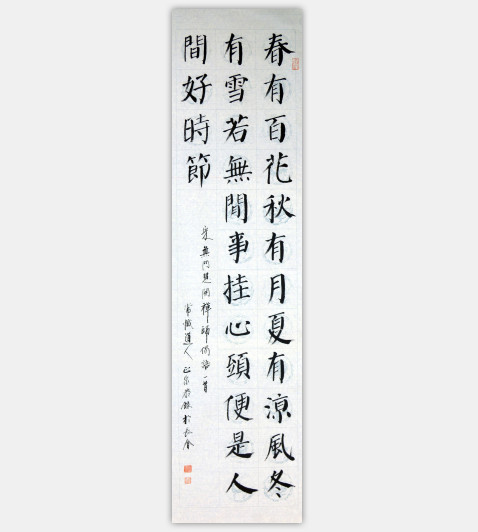 春有百花秋有月夏有涼風冬
有雪若無閒事挂心頭便是人
間好時節
無門慧開禪師偈一首
道人